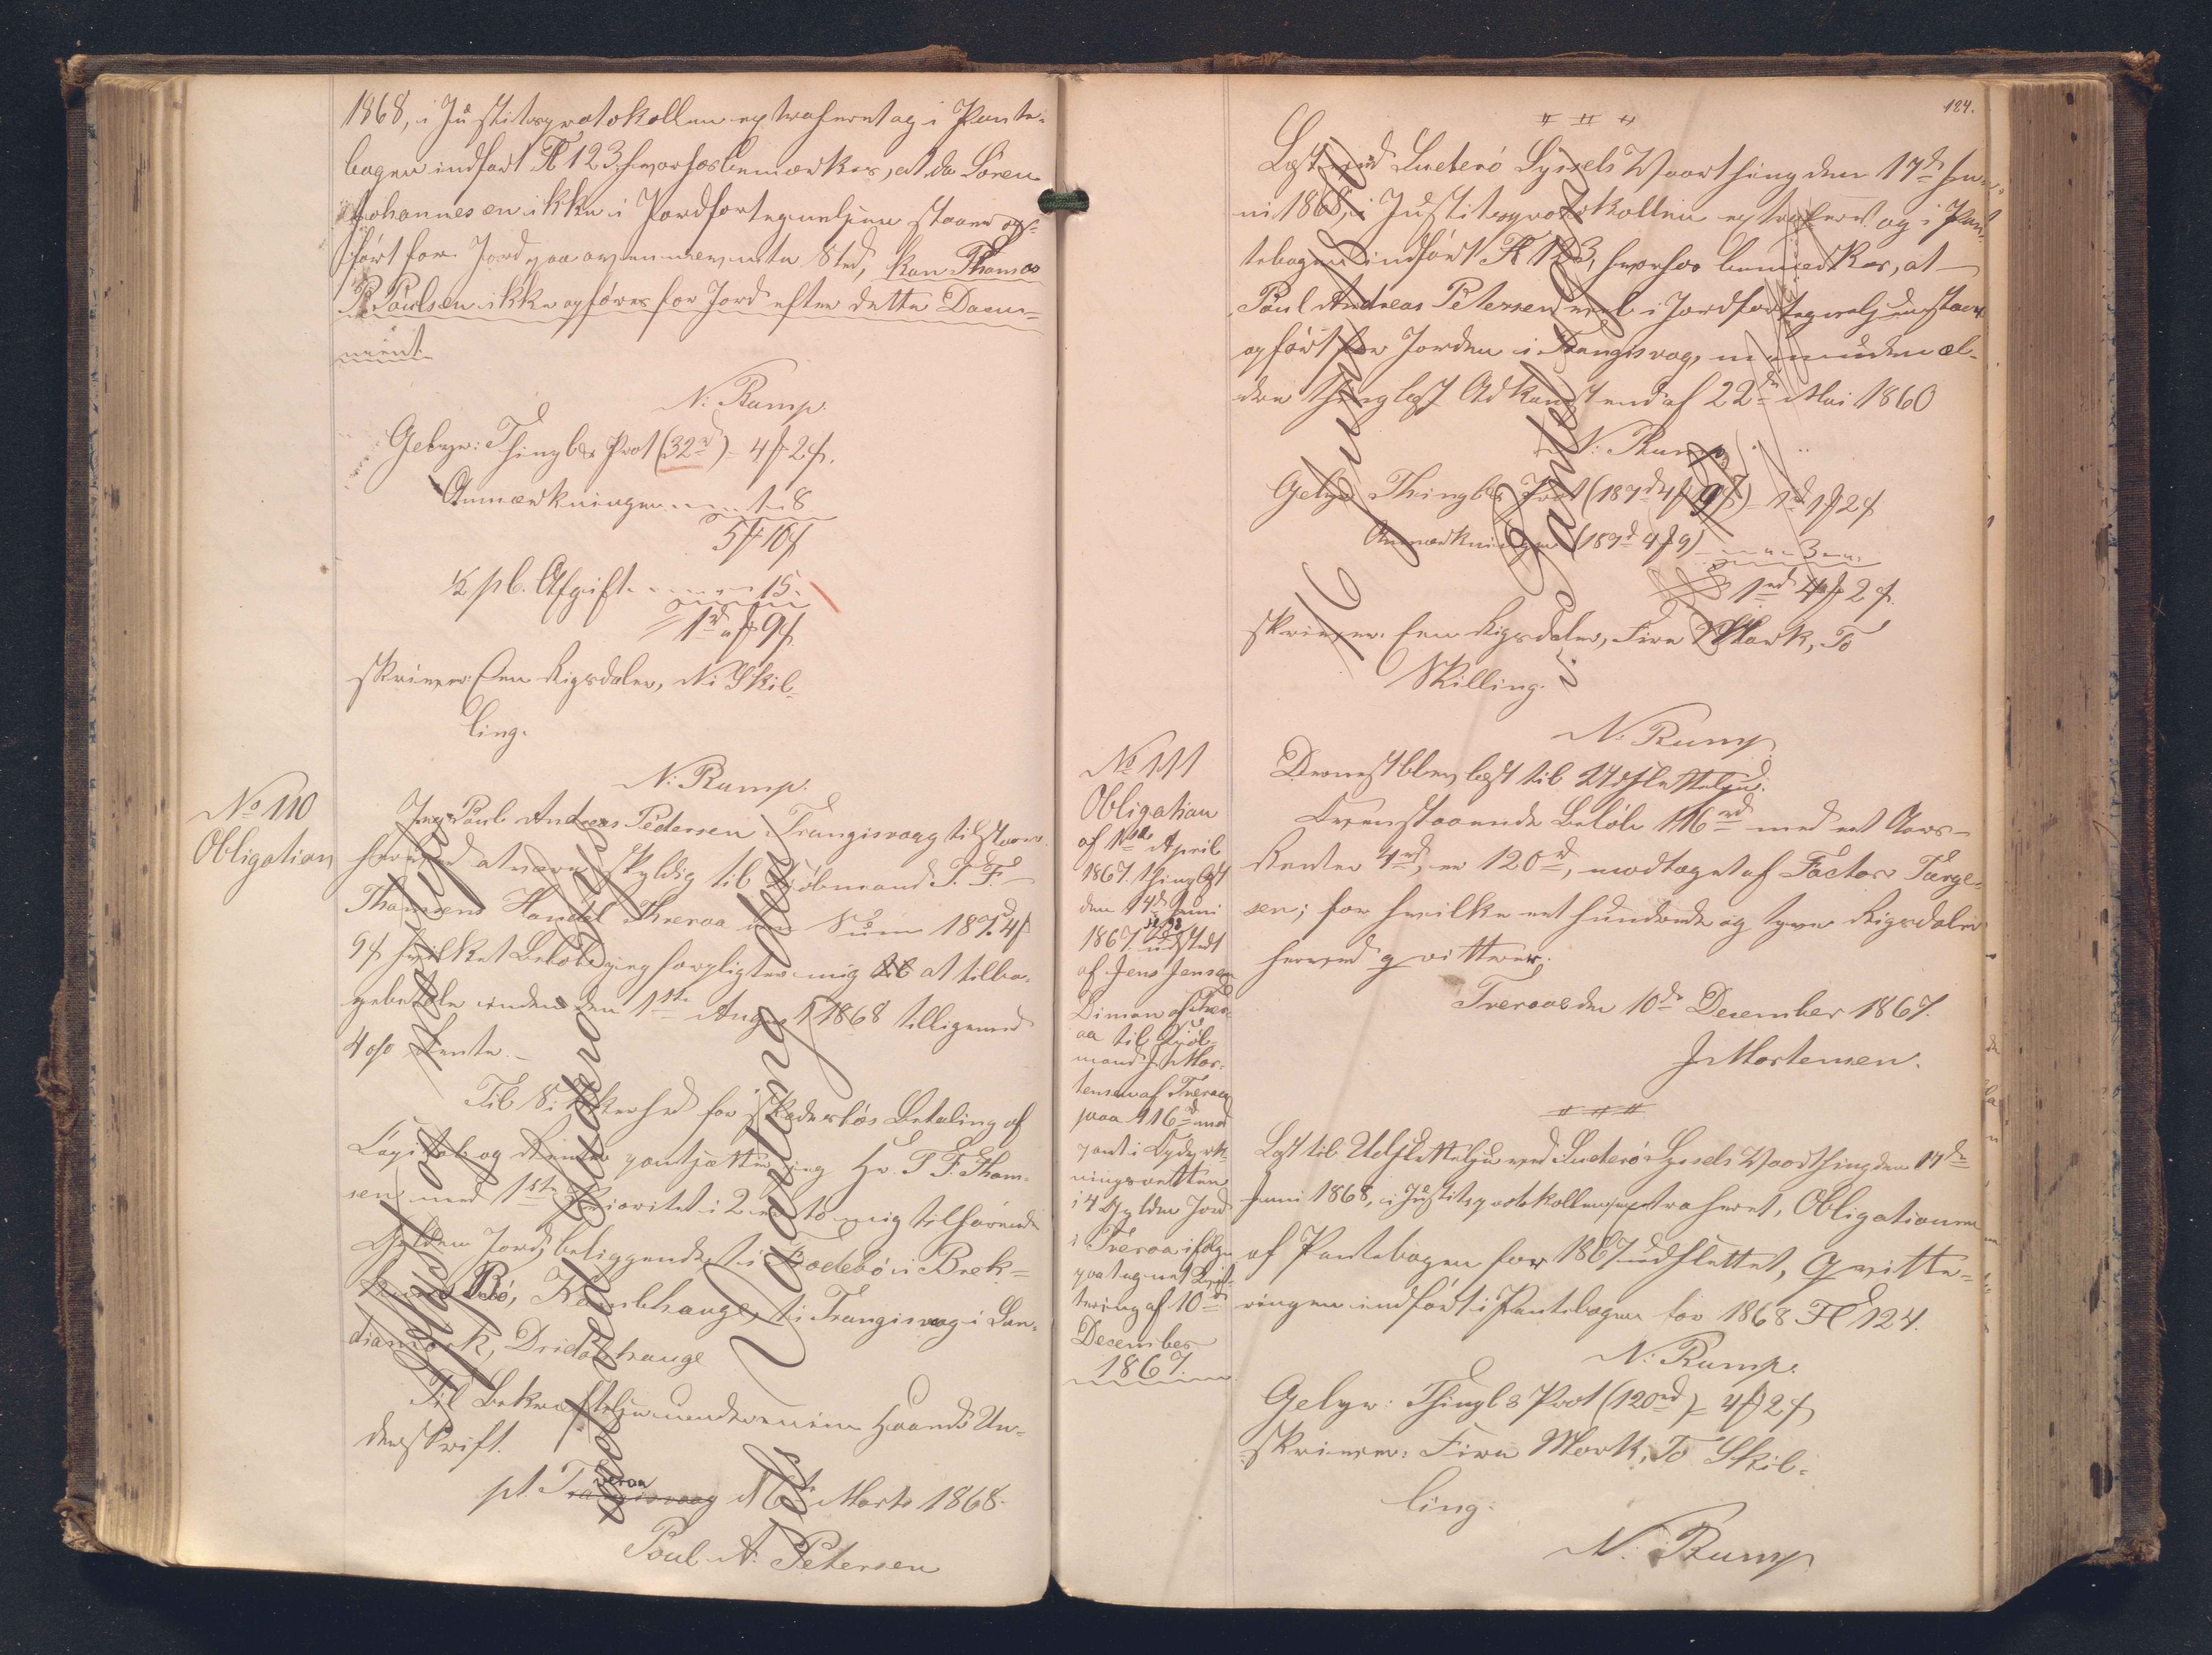 1868, i Justitsprotokollen extraheret og i Pante-
bogen indført Fl 123, hvorhos bemærkes, at da Sören
Johannesen ikke i Jordfortegnelsen staaer op-
ført for Jord paa ovennævnte Sted, kan Thomas
P. Poulsen ikke opføres for Jord efter dette Docu-
ment.
N: Rump.
Gebyr: Thingl & Prot (32rd) = 4 ƒ 2 ß.
Anmærkningen 1 - 8
5 ƒ 10 ß
½ pC. Afgift 15.
1rd " ƒ 9 ß
skriver: Een Rigsdaler, Ni Skil-
ling.
N: Rump.
No 110
Obligation
Jeg Poul Andreas Pedersen Trangisvaag tilstaaer
herved at være skyldig til Kjøbmand T. F.
Thomsens Handel Thveraa den Sum 187rd 4 ƒ
9 ß hvilket Beløb jeg forpligter mig til at tilba-
gebetale inden den 1ste August 1868 tilligemed
4 o/o Rente. -
Til Sikkerhed for skadesløs Betaling af
Capital og Renter pantsætter jeg Hr. T. F. Thom-
sen med 1ste Prioritet i 2 to mig tilhørende
Gylden Jord, beliggende ti Frodebø i Brek-
kuns Bø, Kambhauge, ti Trangisvaag i Lan-
diamörk, Dridalshauge
Til Bekræftelse under min Haands Un-
derskrift.
pt. Trangisvaag veraa d 6te Marts 1868.
Poul A: Petersen
124.
Læst ved Suderø Syssels Vaarthing den 17de Ju-
ni 1868, i Justitsprotokollen extraheret og i Pan-
tebogen indført Fl 123, hvorhos bemærkes, at
Poul Andreas Petersen vel i Jordfortegnelsen staaer
opført for Jorden i Trangisvaag, men uden æl-
dre thinglæst Adkomst end af 22de Mai 1860
N: Rump.
Gebyr Thingl & Prot (187rd 4 ƒ 9 ß) = 1rd 1 ƒ 2 ß
Anmærkningen (187rd 4 ƒ 9) " 3 "
1rd 4 ƒ 2 ß.
skriver: Een Rigsdaler, Fire Mark, To
Skilling.
N. Rump
No 111
Obligation
af 1ste April
1867. thinglæst
den 14de Juni
1867. udstedt
af Jens Jensen
Dimon af Tver-
aa til Kjöb-
mand J. Mor-
tensen af Tveraa
paa 116rd med
pant i Opdyrk-
ningsretten
i 4 Gylden Jord
i Tveraa ifølge
paategnet Qvit-
tering af 10de
December
1867.
Dernæst blev læst til Udslettelse:
Ovenstaaende Beløb 116rd med eet Aars
Renter 4rd, er 120rd, modtaget af Factor Jørge-
sen; for hvilke eet hundrede og tyve Rigsdaler
herved qvitteres.
Tveraae den 10de December 1867.
J Mortensen.
Læst til Udslettelse ved Suderø Syssels Vaarthing den 17de
Juni 1868, i Justitsprotokollen extraheret, Obligationen
af Pantebogen for 1867 udslettet, Qvitte-
ringen indført i Pantebogen for 1868 Fl 124.
N: Rump.
Gebyr: Thingl & Prot (120rd) = 4 ƒ 2 ß
skriver: Fire Mark, To Skil-
ling:
N. Rump